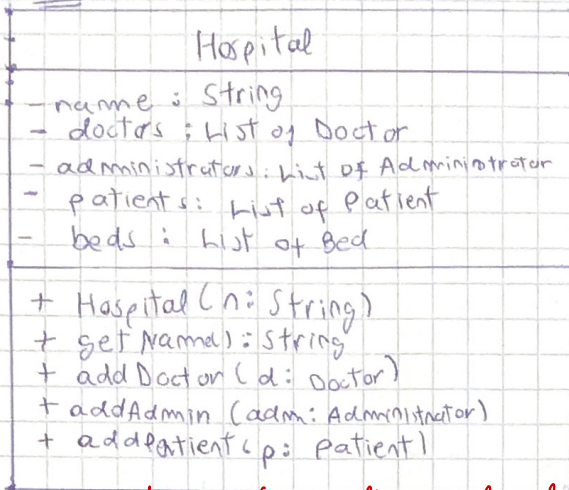 Hospital
- name : String
- doctors : List of Doctor
- administrators : List of Administrator
- patients : List of Patient
- beds : List of Bed
+ Hospital (n : String)
+ getName() : String
+ addDoctor (d : Doctor)
+ addAdmin (adm : Administrator)
+ addPatient (p : Patient)